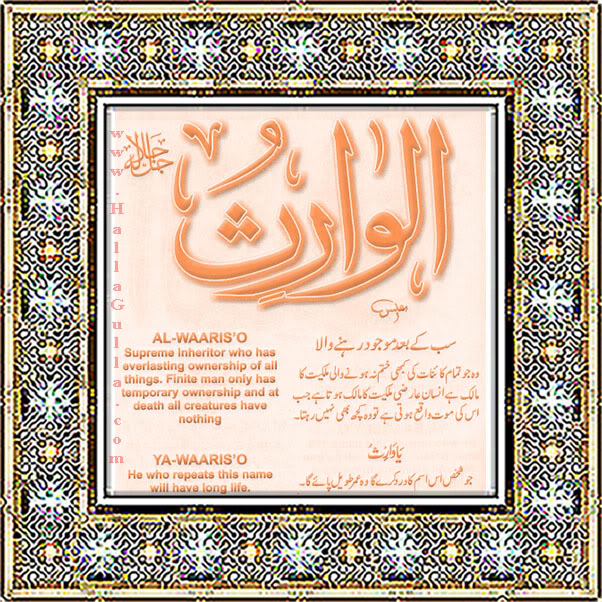 الوارث
جل جلاله
AL-WAARIS'O
Supreme Inheritor who has
everlasting ownership of all
things. Finite man only has
temporary ownership and at
death all creatures have
nothing
سب کے بعد موجود رہنے والا
وہ جو تمام کائنات کی کبھی ختم نہ ہونے والی ملکیت کا
مالک ہے انسان عارضی ملکیت کا مالک ہوتا ہے جب
اس کی موت واقع ہوتی ہے تو وہ کچھ بھی نہیں رہتا۔
YA-WAARIS'O
He who repeats this name
will have long life.
یَا وَارِثُ
جو شخص اس اسم کا ورد کرے گا وہ عمر طویل پائے گا۔
www.HallaGulla.com